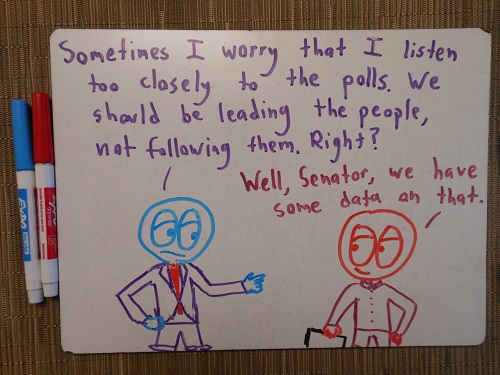 Sometimes I worry that I listen
too closely to the polls. We
should be leading the people,
not following them. Right?
Well, Senator, we have
some data on that.
EXPO